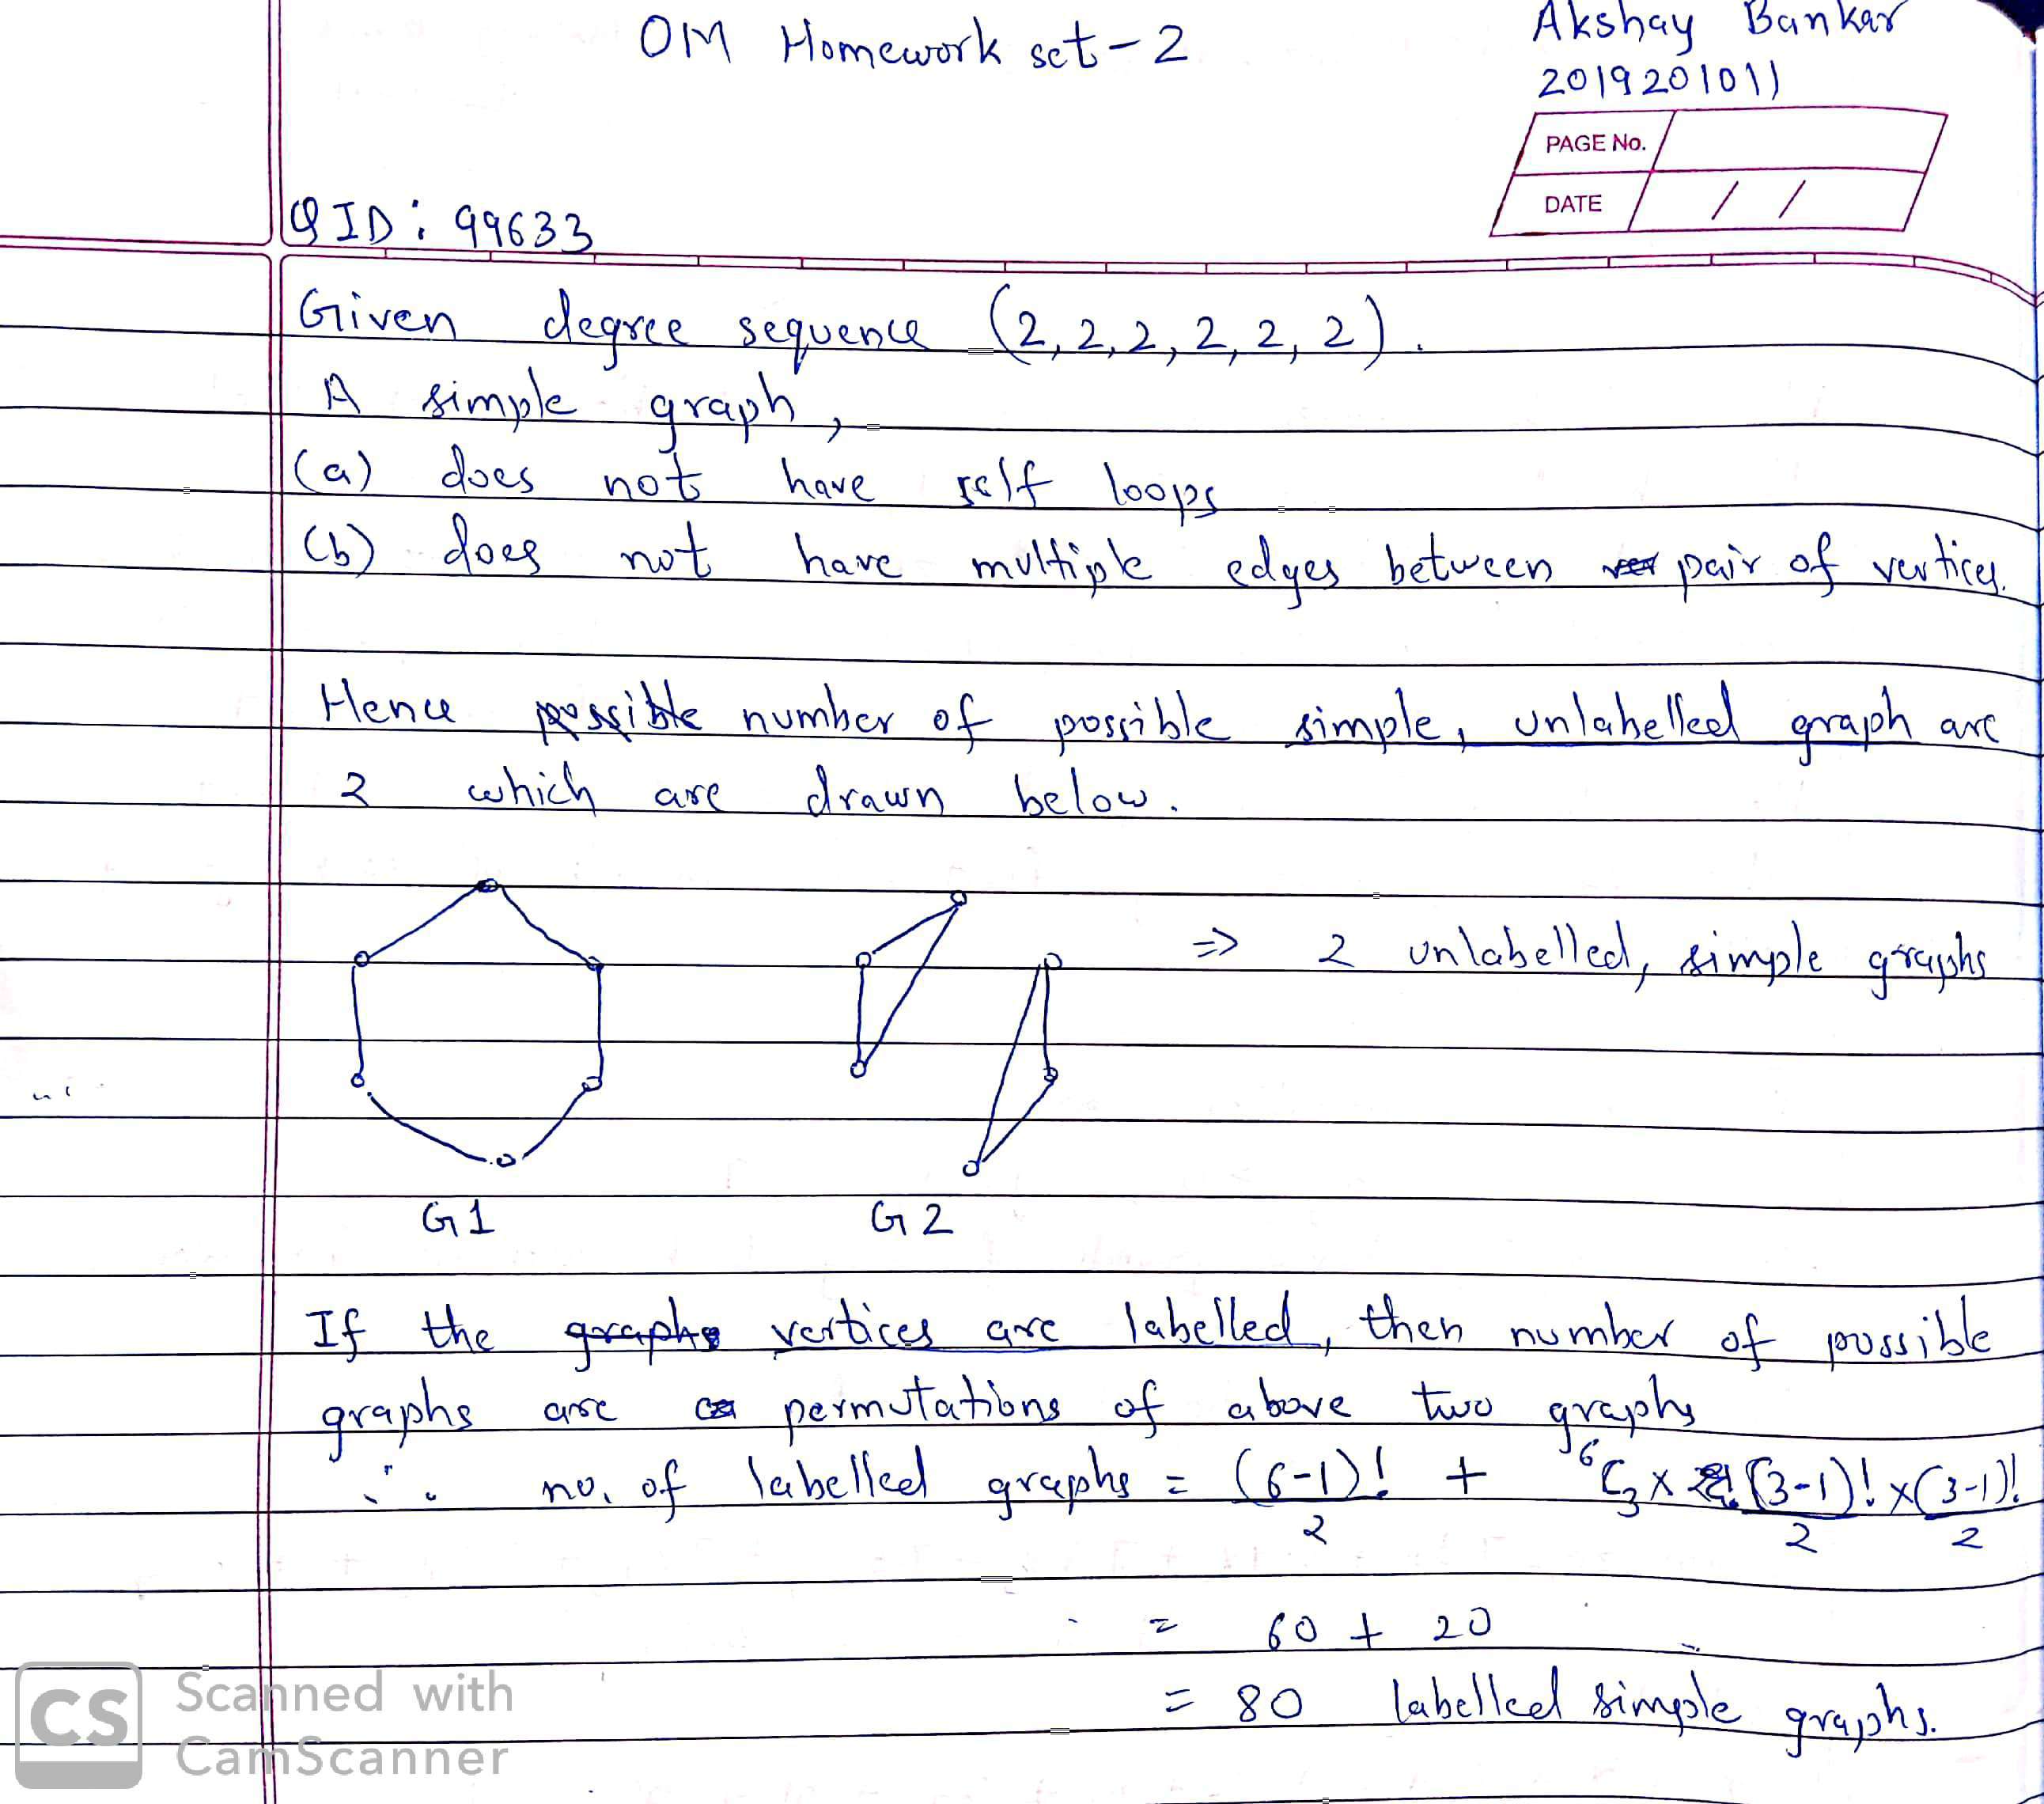 OM Homework set-2
Akshay Bankar
2019201011
PAGE No.
DATE / /
QID: 99633
Given degree sequence (2, 2, 2, 2, 2, 2).
A simple graph,
(a) does not have self loops
(b) does not have multiple edges between pair of vertices.
Hence possible number of possible simple, unlabelled graph are
2 which are drawn below.
⇒ 2 unlabelled, simple graphs
G1 G2
If the graphs vertices are labelled, then number of possible
graphs are permutations of above two graphs
∴ no. of labelled graphs = (6-1)!/2 + ⁶C₃ × (3-1)!/2 × (3-1)!/2
= 60 + 20
= 80 labelled simple graphs.
CS Scanned with
CamScanner